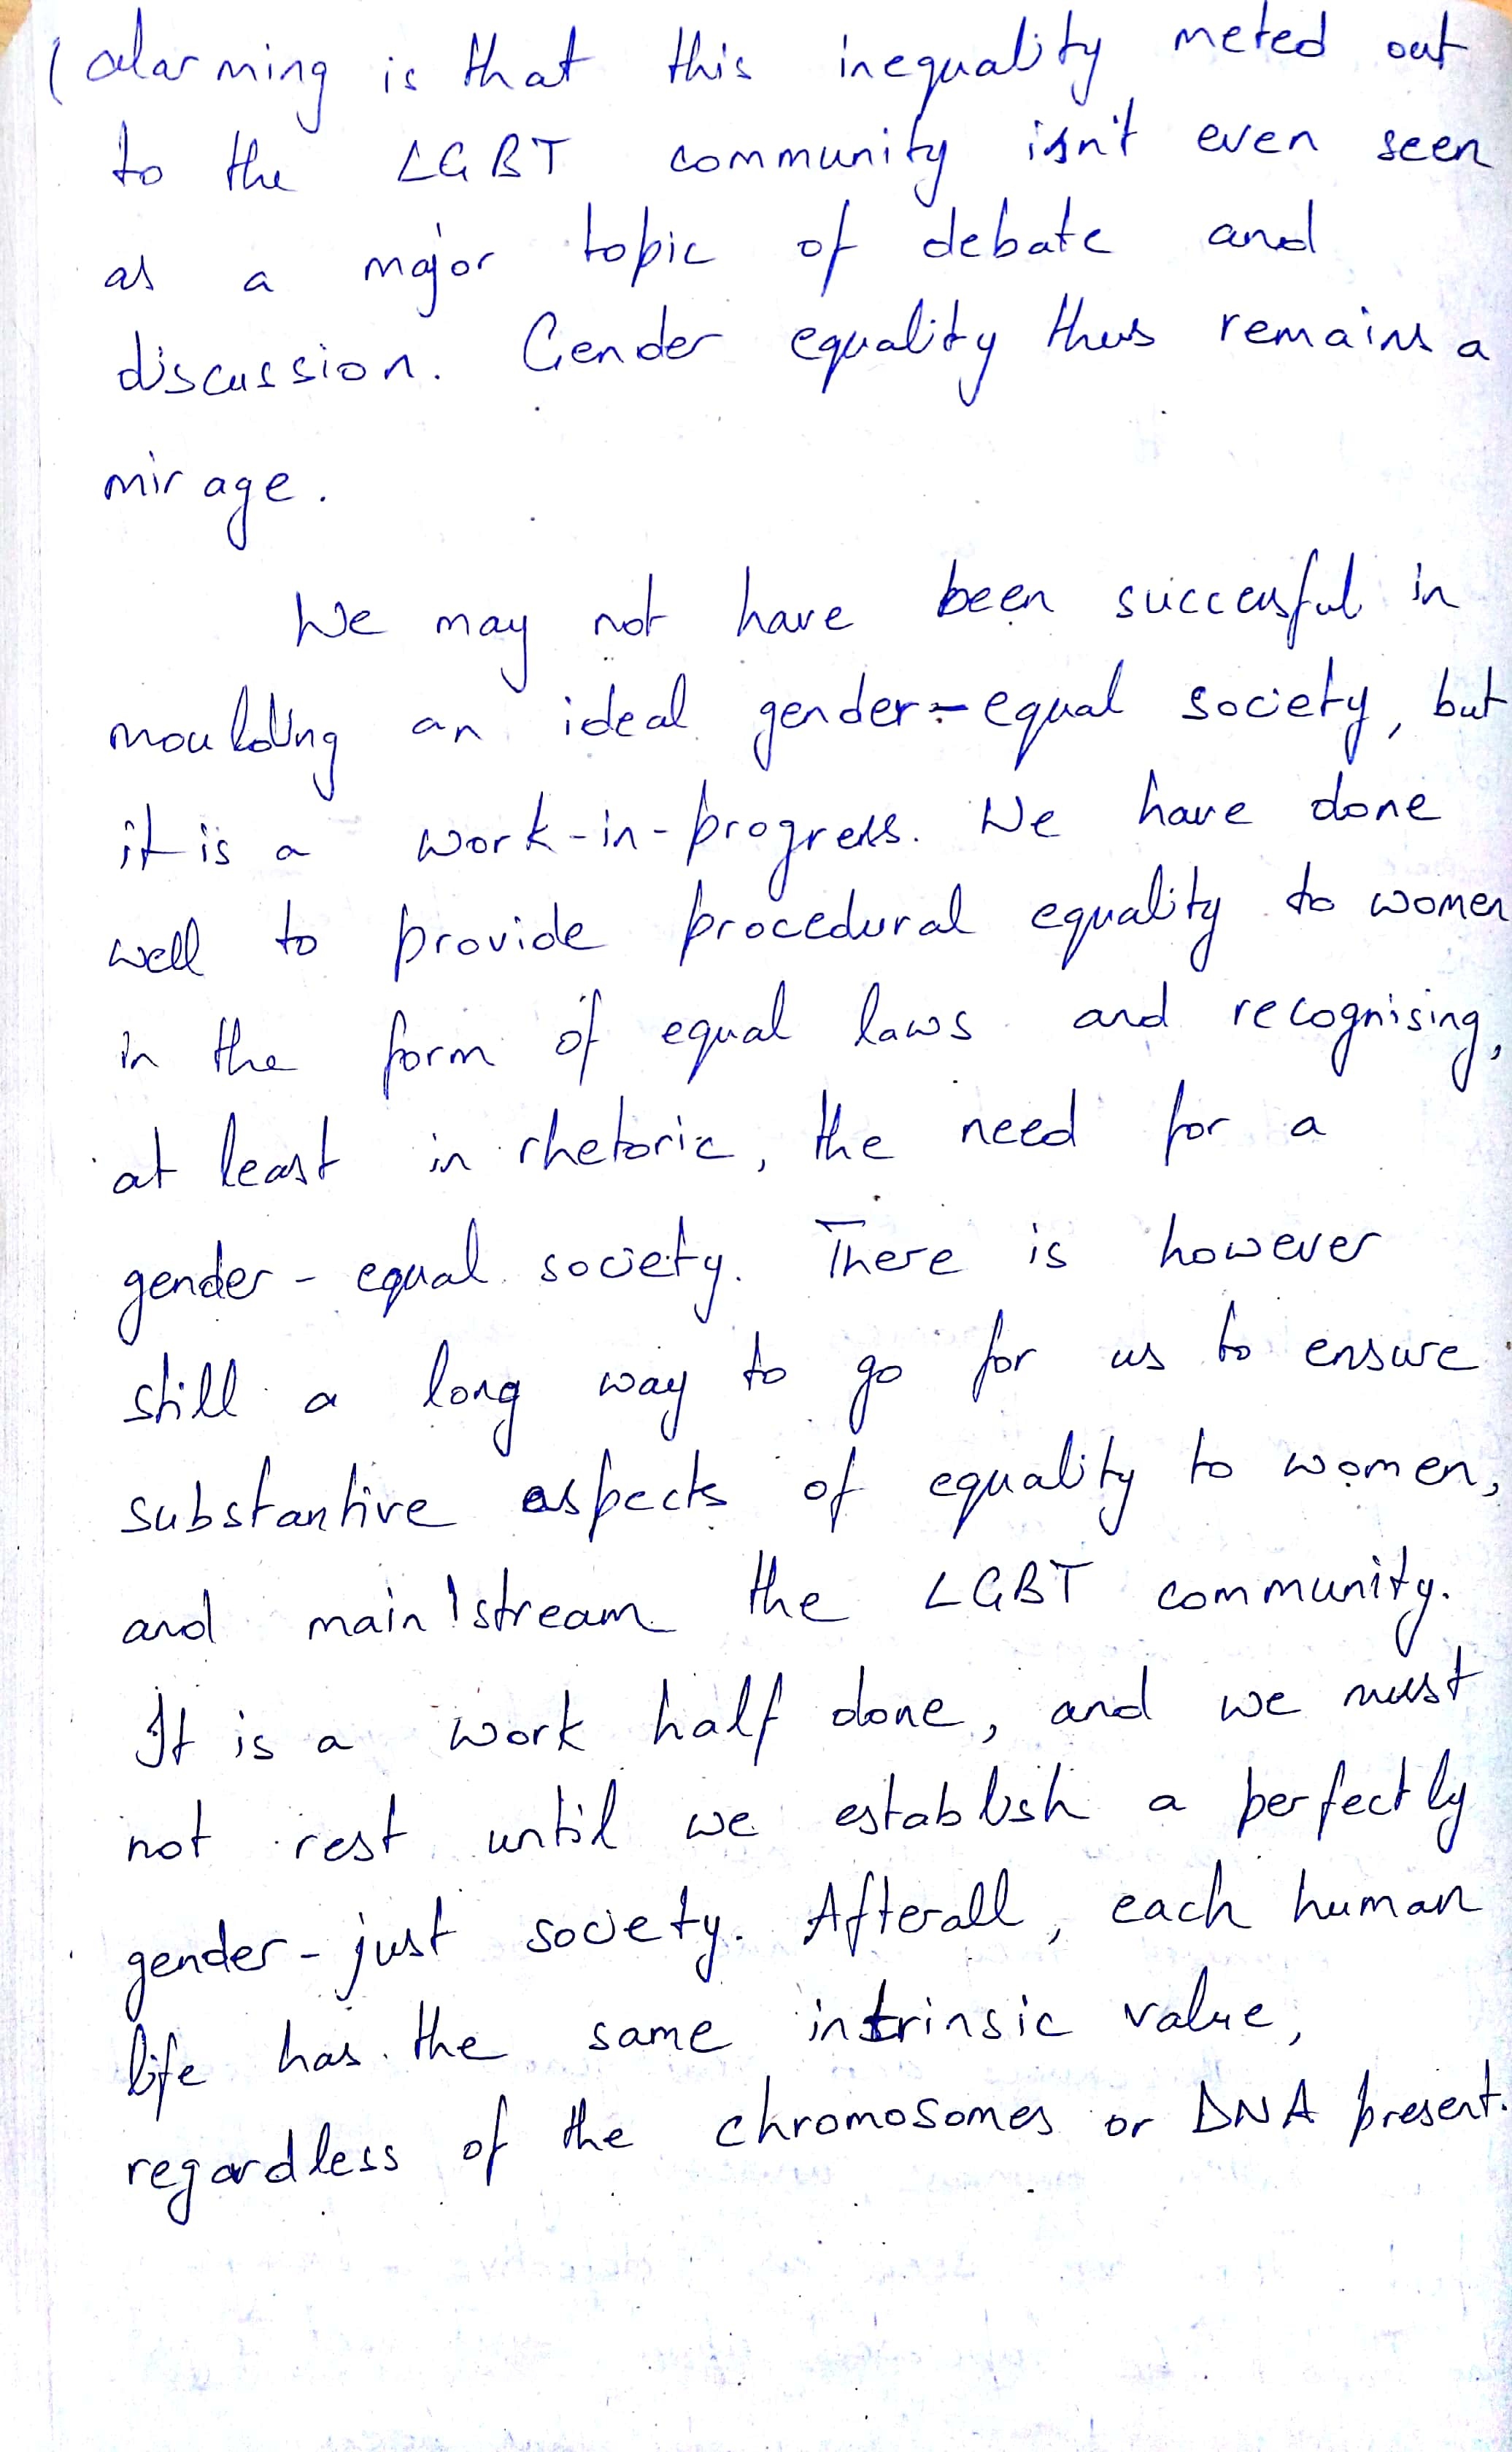 alarming is that this inequality meted out
to the LGBT community isn't even seen
as a major topic of debate and
discussion. Gender equality thus remains a
mirage.
We may not have been succesful in
moulding an ideal gender-equal society, but
it is a work-in-progress. We have done
well to provide procedural equality to women
in the form of equal laws and recognising,
at least in rhetoric, the need for a
gender-equal society. There is however
still a long way to go for us to ensure
substantive aspects of equality to women,
and mainstream the LGBT community.
It is a work half done, and we must
not rest until we establish a perfectly
gender-just society. Afterall, each human
life has the same intrinsic value,
regardless of the chromosomes or DNA present.